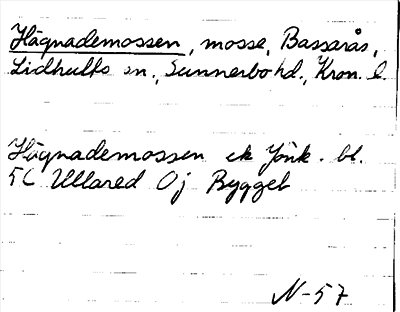 Hägnademossen, mosse, Bassarås,
Lidhults sn., Sunnerbo hd., Kron. l.
Hägnademossen ek Jönk. bl.
5C Ullared 0j Bygget
N-57